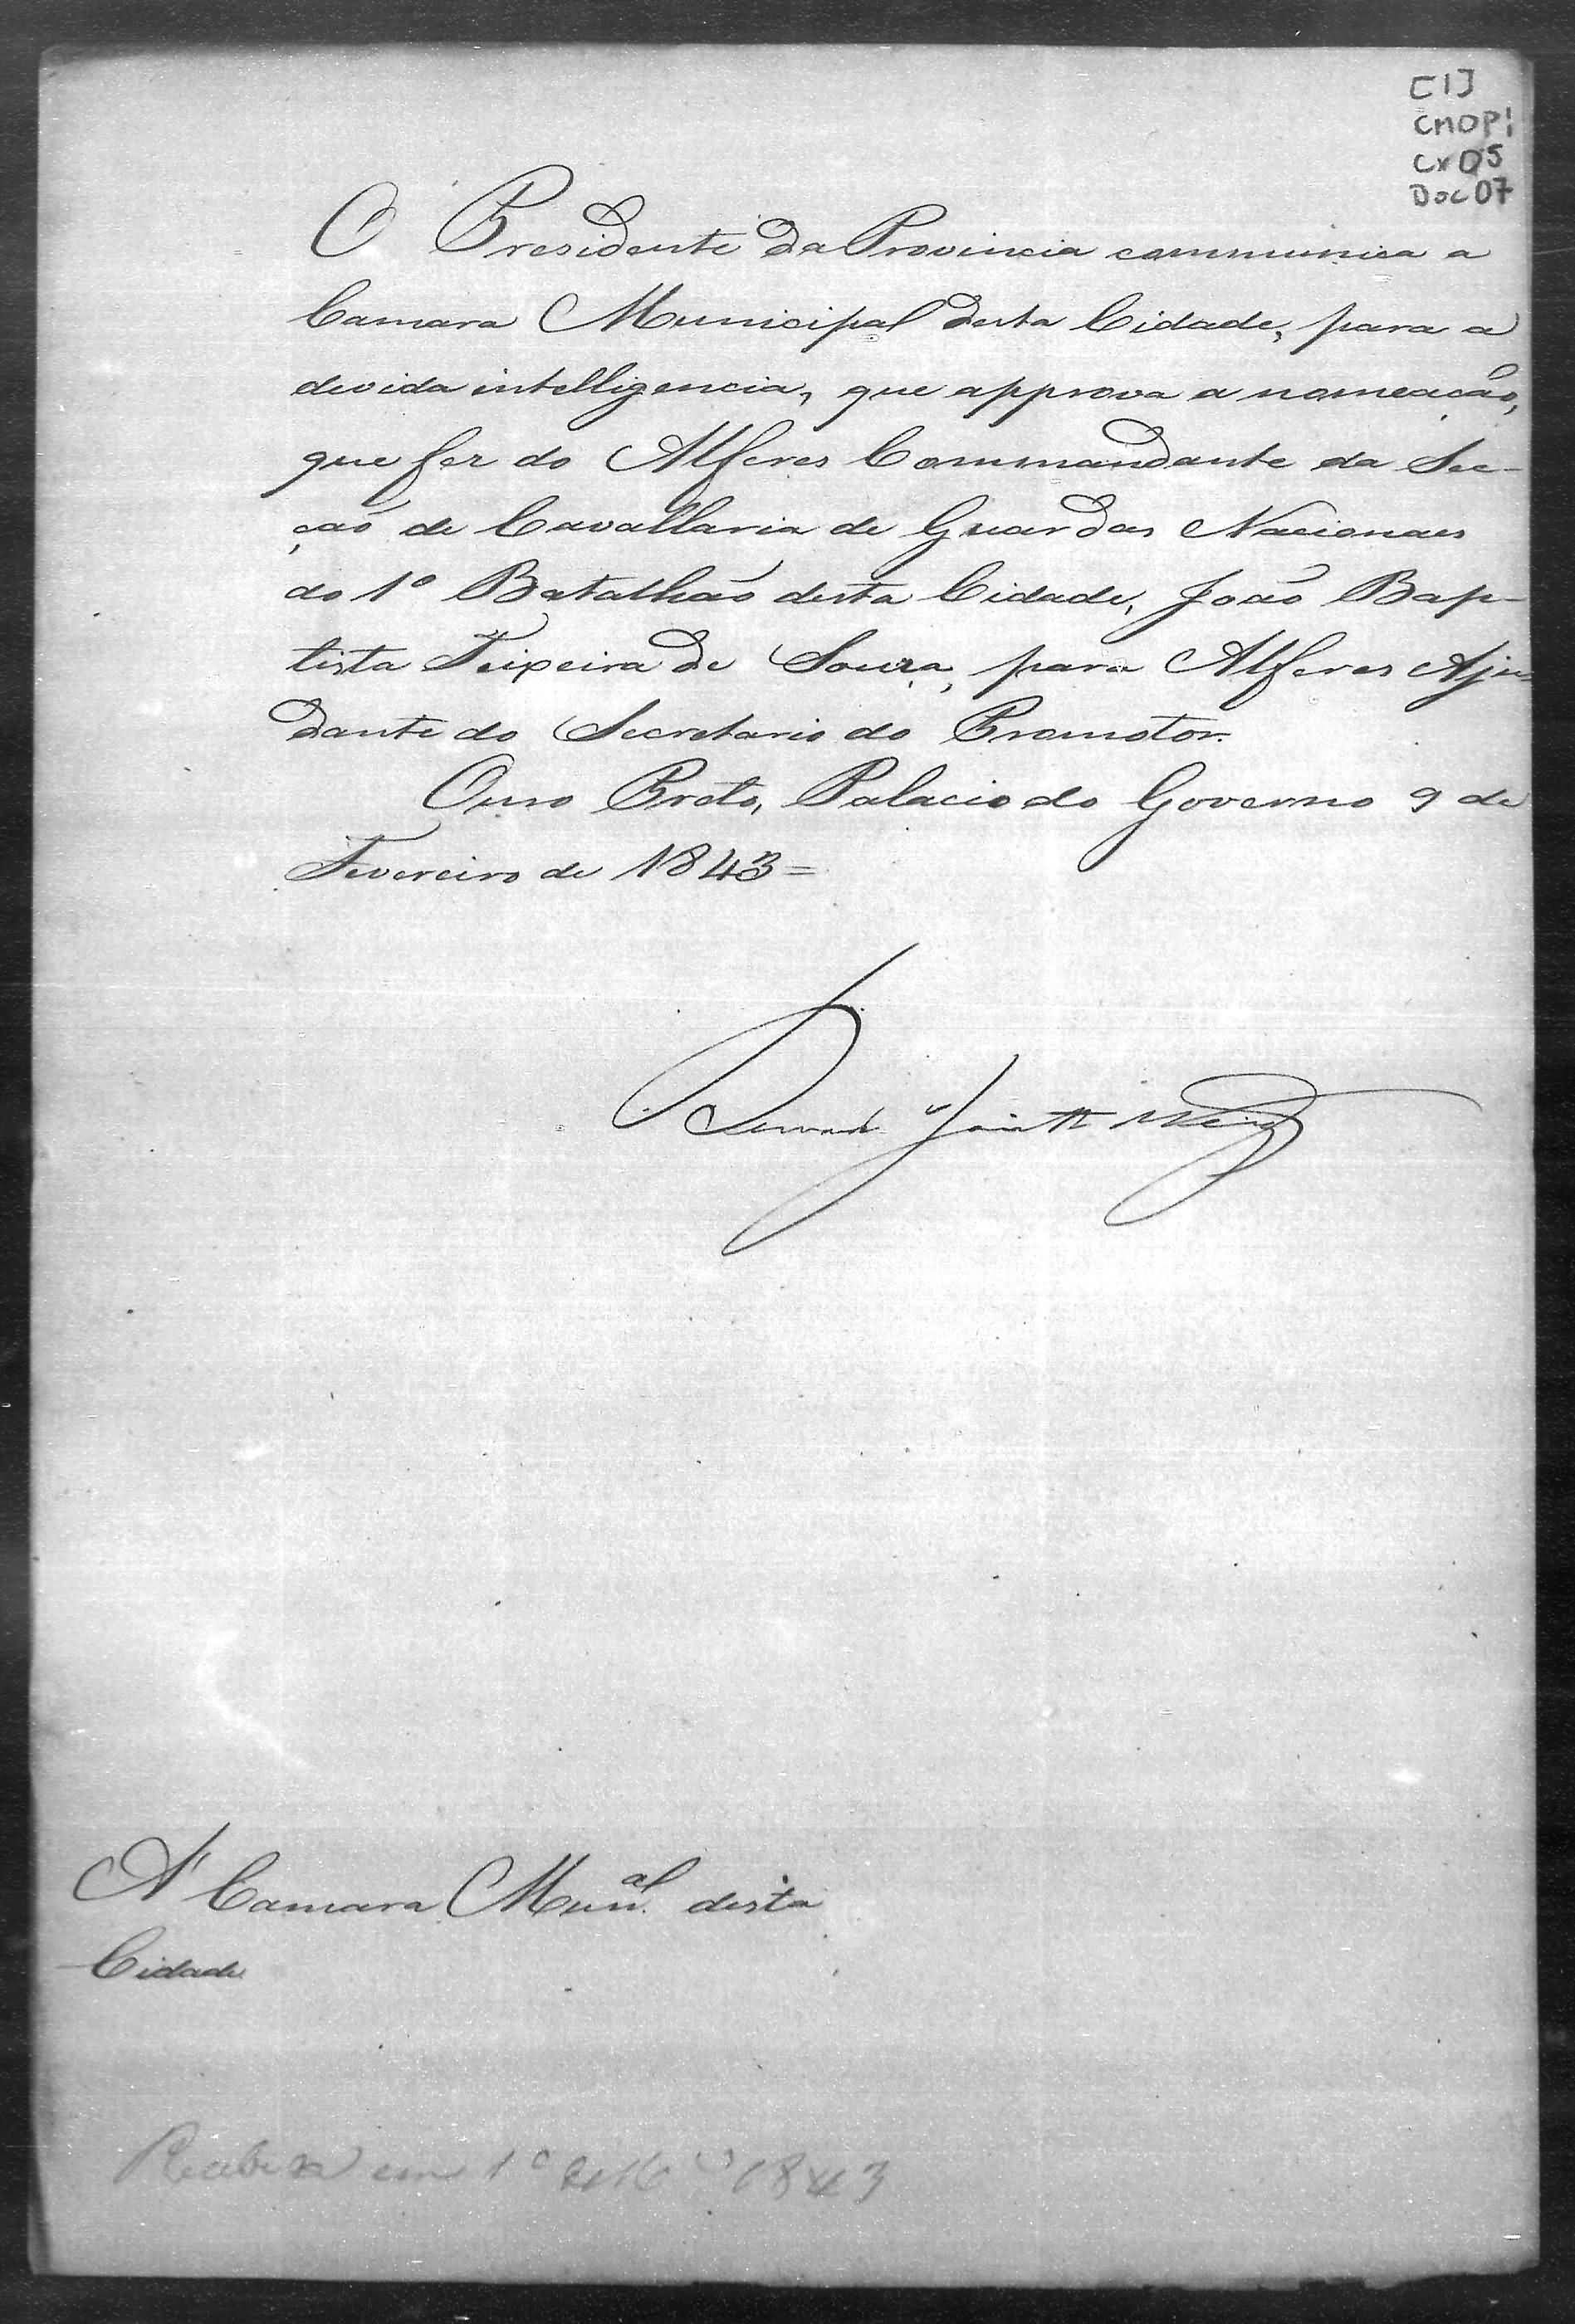 [1]
CMOP!
Cx 05
Doc 07
O Presidente da Provincia communica a
Camara Municipal desta Cidade, para a
devida intelligencia, que approva a nomeação,
que fez do Alferes Commandante da Sec-
ção de Cavallaria de Guardas Nacionaes
do 1º Batalhão desta Cidade, João Bap-
tista Teixeira de Souza, para Alferes Aju-
dante do Secretario do Promotor.
Ouro Preto, Palacio do Governo 9 de
Fevereiro de 1843=
A' Camara Mun.al desta
Cidade
em 1º 1843